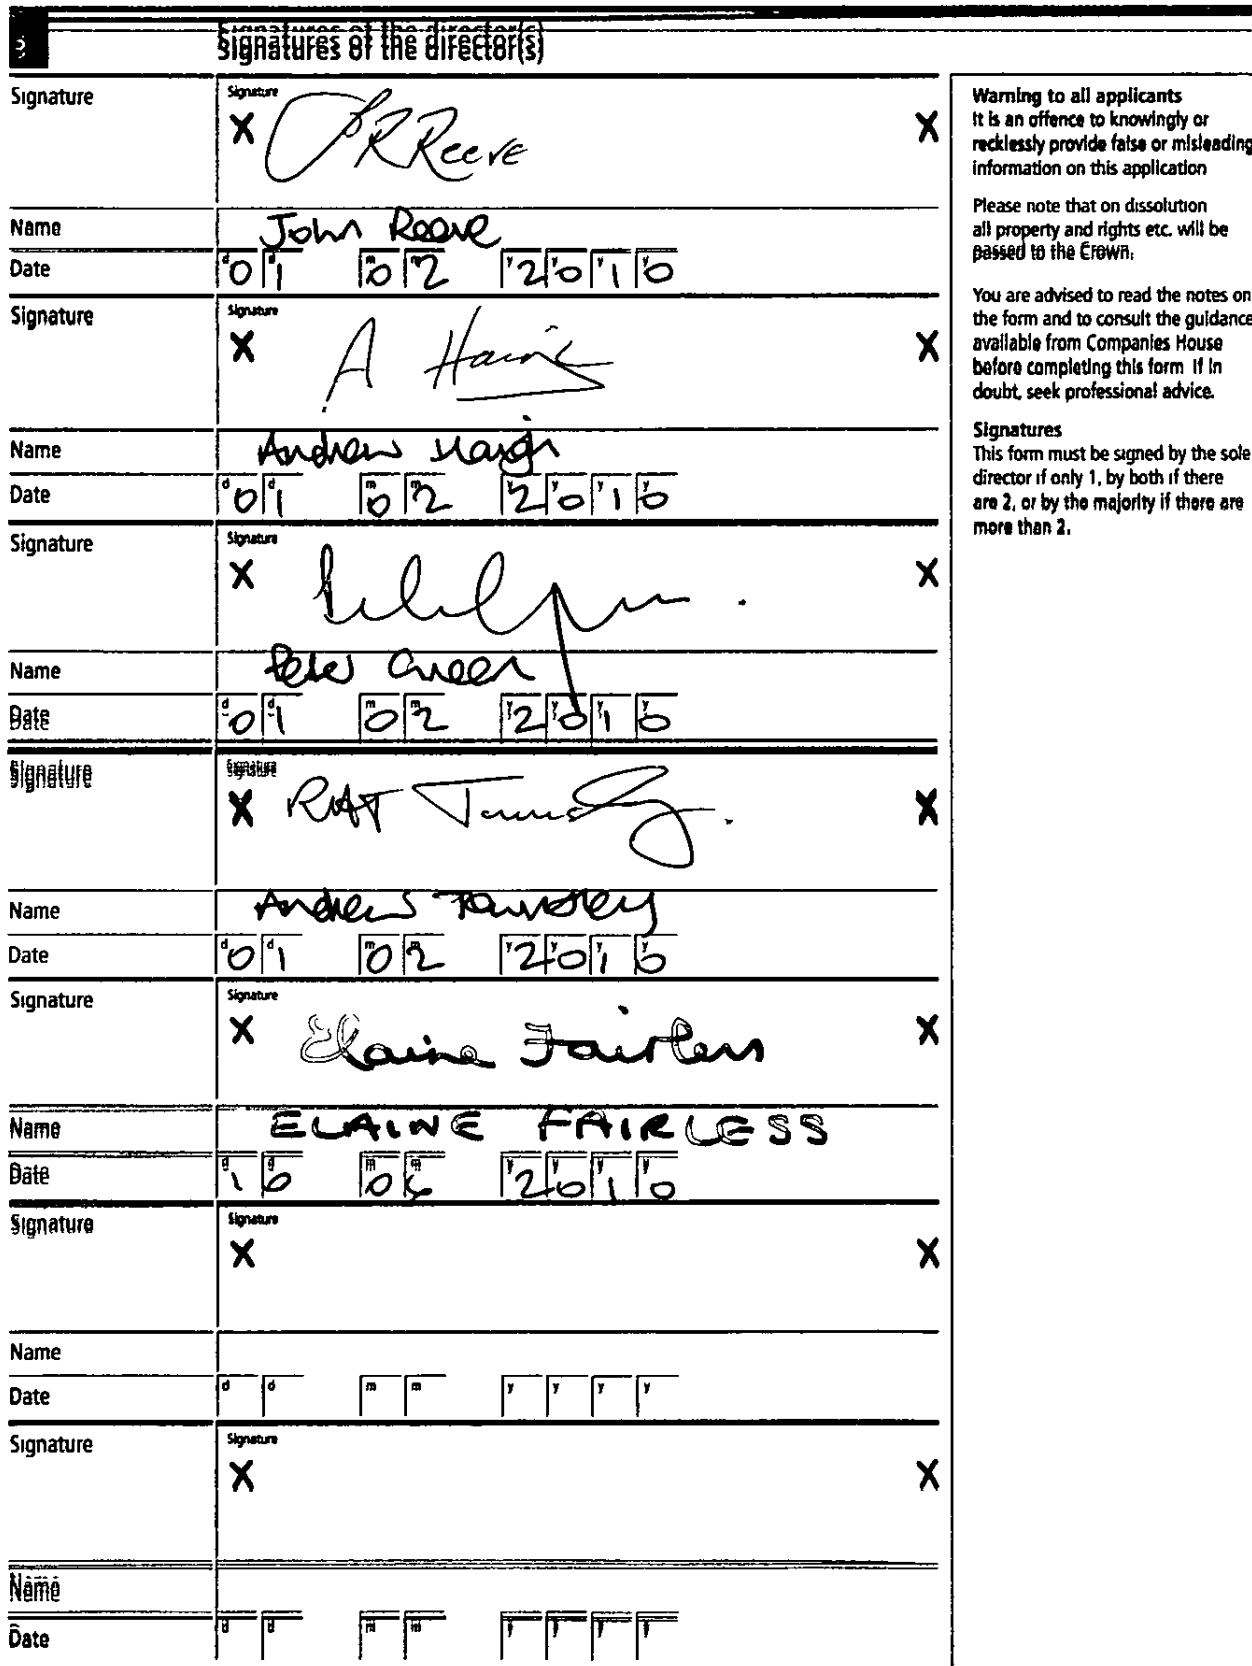 Signatures of the director(s)
Signature
Signature
X J R Reeve X
Name John Reeve
Date d0 d1 m0 m2 y2 y0 y1 y0
Signature
Signature
X A Haigh X
Name Andrew Haigh
Date d0 d1 m0 m2 y2 y0 y1 y0
Signature
Signature
X X
Name Peter Green
Date d0 d1 m0 m2 y2 y0 y1 y0
Signature
Signature
X X
Name Andrew Townsley
Date d0 d1 m0 m2 y2 y0 y1 y0
Signature
Signature
X Elaine Fairless X
Name ELAINE FAIRLESS
Date d1 d0 m0 y2 y0 y1 y0
Signature
Signature
X X
Name
Date d d m m y y y y
Signature
Signature
X X
Name
Date d d m m y y y y
Warning to all applicants
It is an offence to knowingly or
recklessly provide false or misleading
information on this application
Please note that on dissolution
all property and rights etc. will be
passed to the Crown.
You are advised to read the notes on
the form and to consult the guidance
available from Companies House
before completing this form If in
doubt, seek professional advice.
Signatures
This form must be signed by the sole
director if only 1, by both if there
are 2, or by the majority if there are
more than 2.